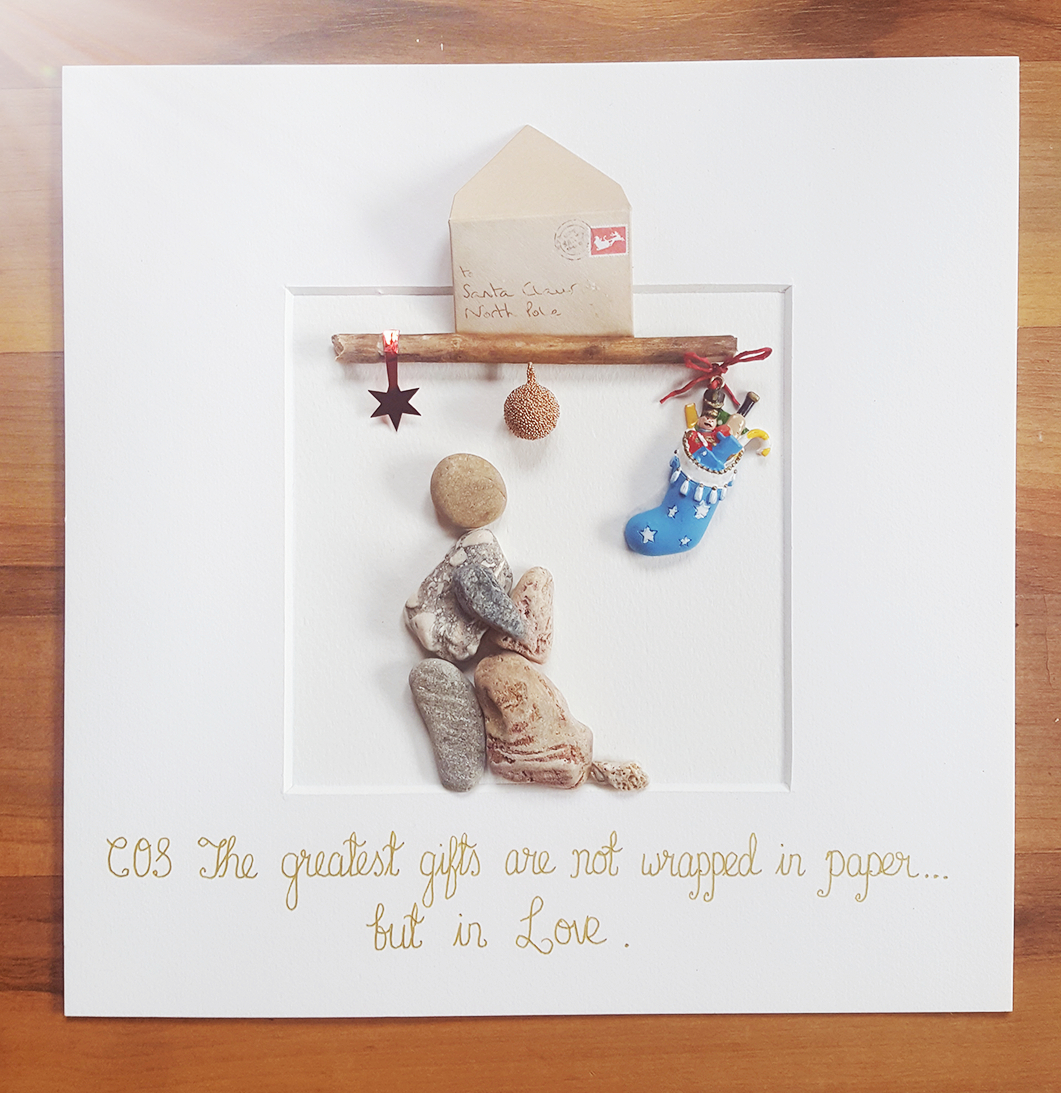 to
Santa Claus
North Pole
COS The greatest gifts are not wrapped in paper...
but in Love.